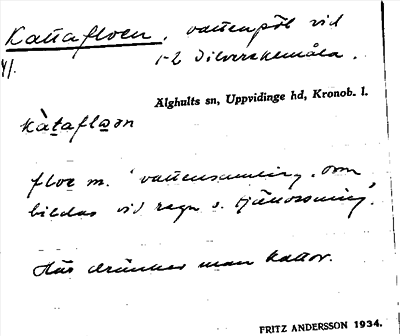 Kattafloen, vattenpöl vid
1-2 Silverekemåla.
41.
Älghults sn, Uppvidinge hd, Kronob. l.
kàtaflɷən
floe m. 'vattensamling, som
bildas vid regn o. tjällossning'.
Här dränkes man kattor.
FRITZ ANDERSSON 1934.